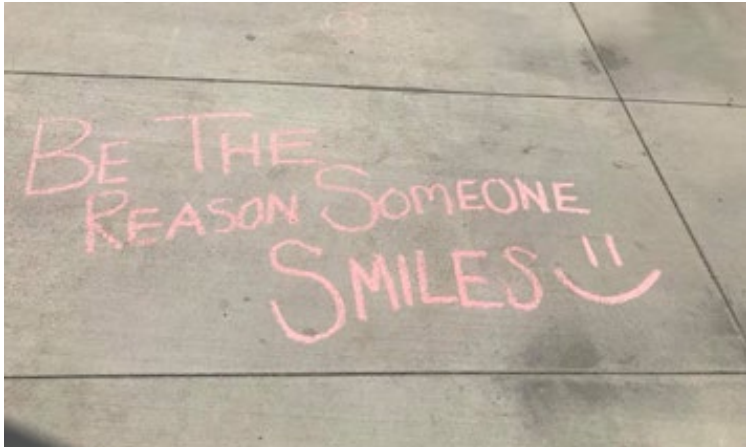 BE THE
REASON SOMEONE
SMILES